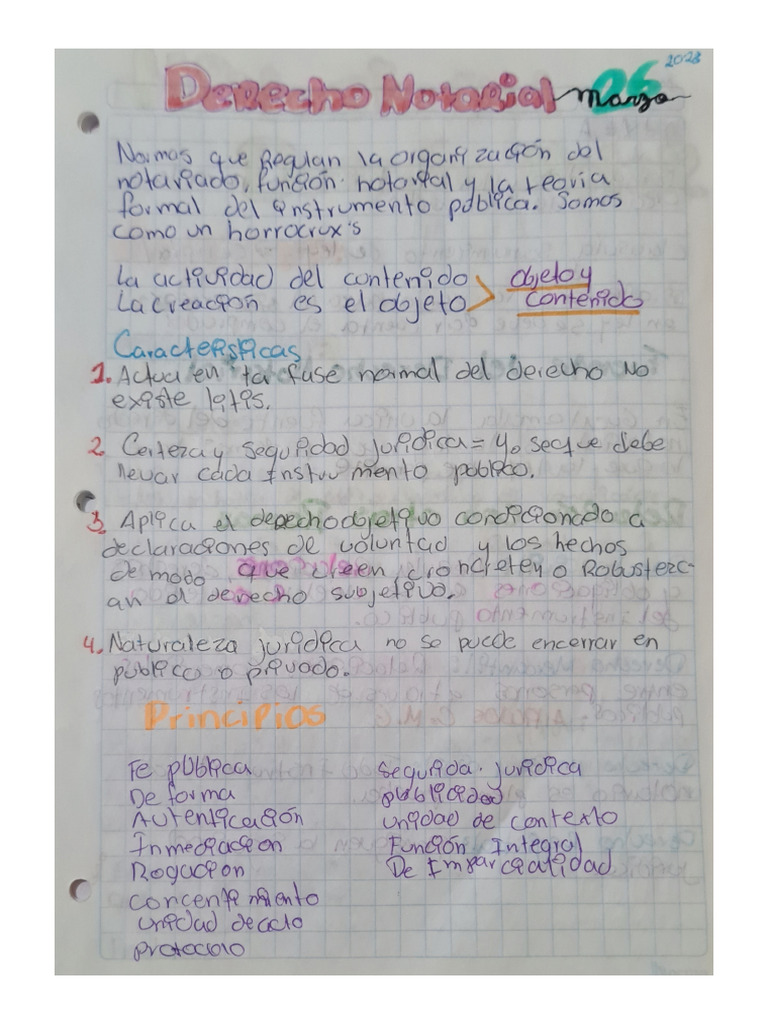 2023
Derecho Notarial 06 marzo
Normas que Regulan la organización del
notariado, función notarial y la teoria
formal del instrumento pública. Somos
como un horrocrux's
La actividad del contenido
La creación es el objeto
objeto y
contenido
Caracteristicas
1. Actua en la fase normal del derecho No
existe latis.
2. Certeza y seguridad juridica = Yo se que debe
llevar cada Instrumento público.
3. Aplica el derecho objetivo condicionado a
declaraciones de voluntad y los hechos
de modo que creen, concreten o Robustezc-
an el derecho subjetivo.
4. Naturaleza juridica no se puede encerrar en
público o privado.
Principios
Fe pública
De forma
Autenticación
Inmediacion
Rogacion
concentimiento
unidad de acto
protocolo
segurida juridica
publicidad
unidad de contexto
Función Integral
De Imparcialidad